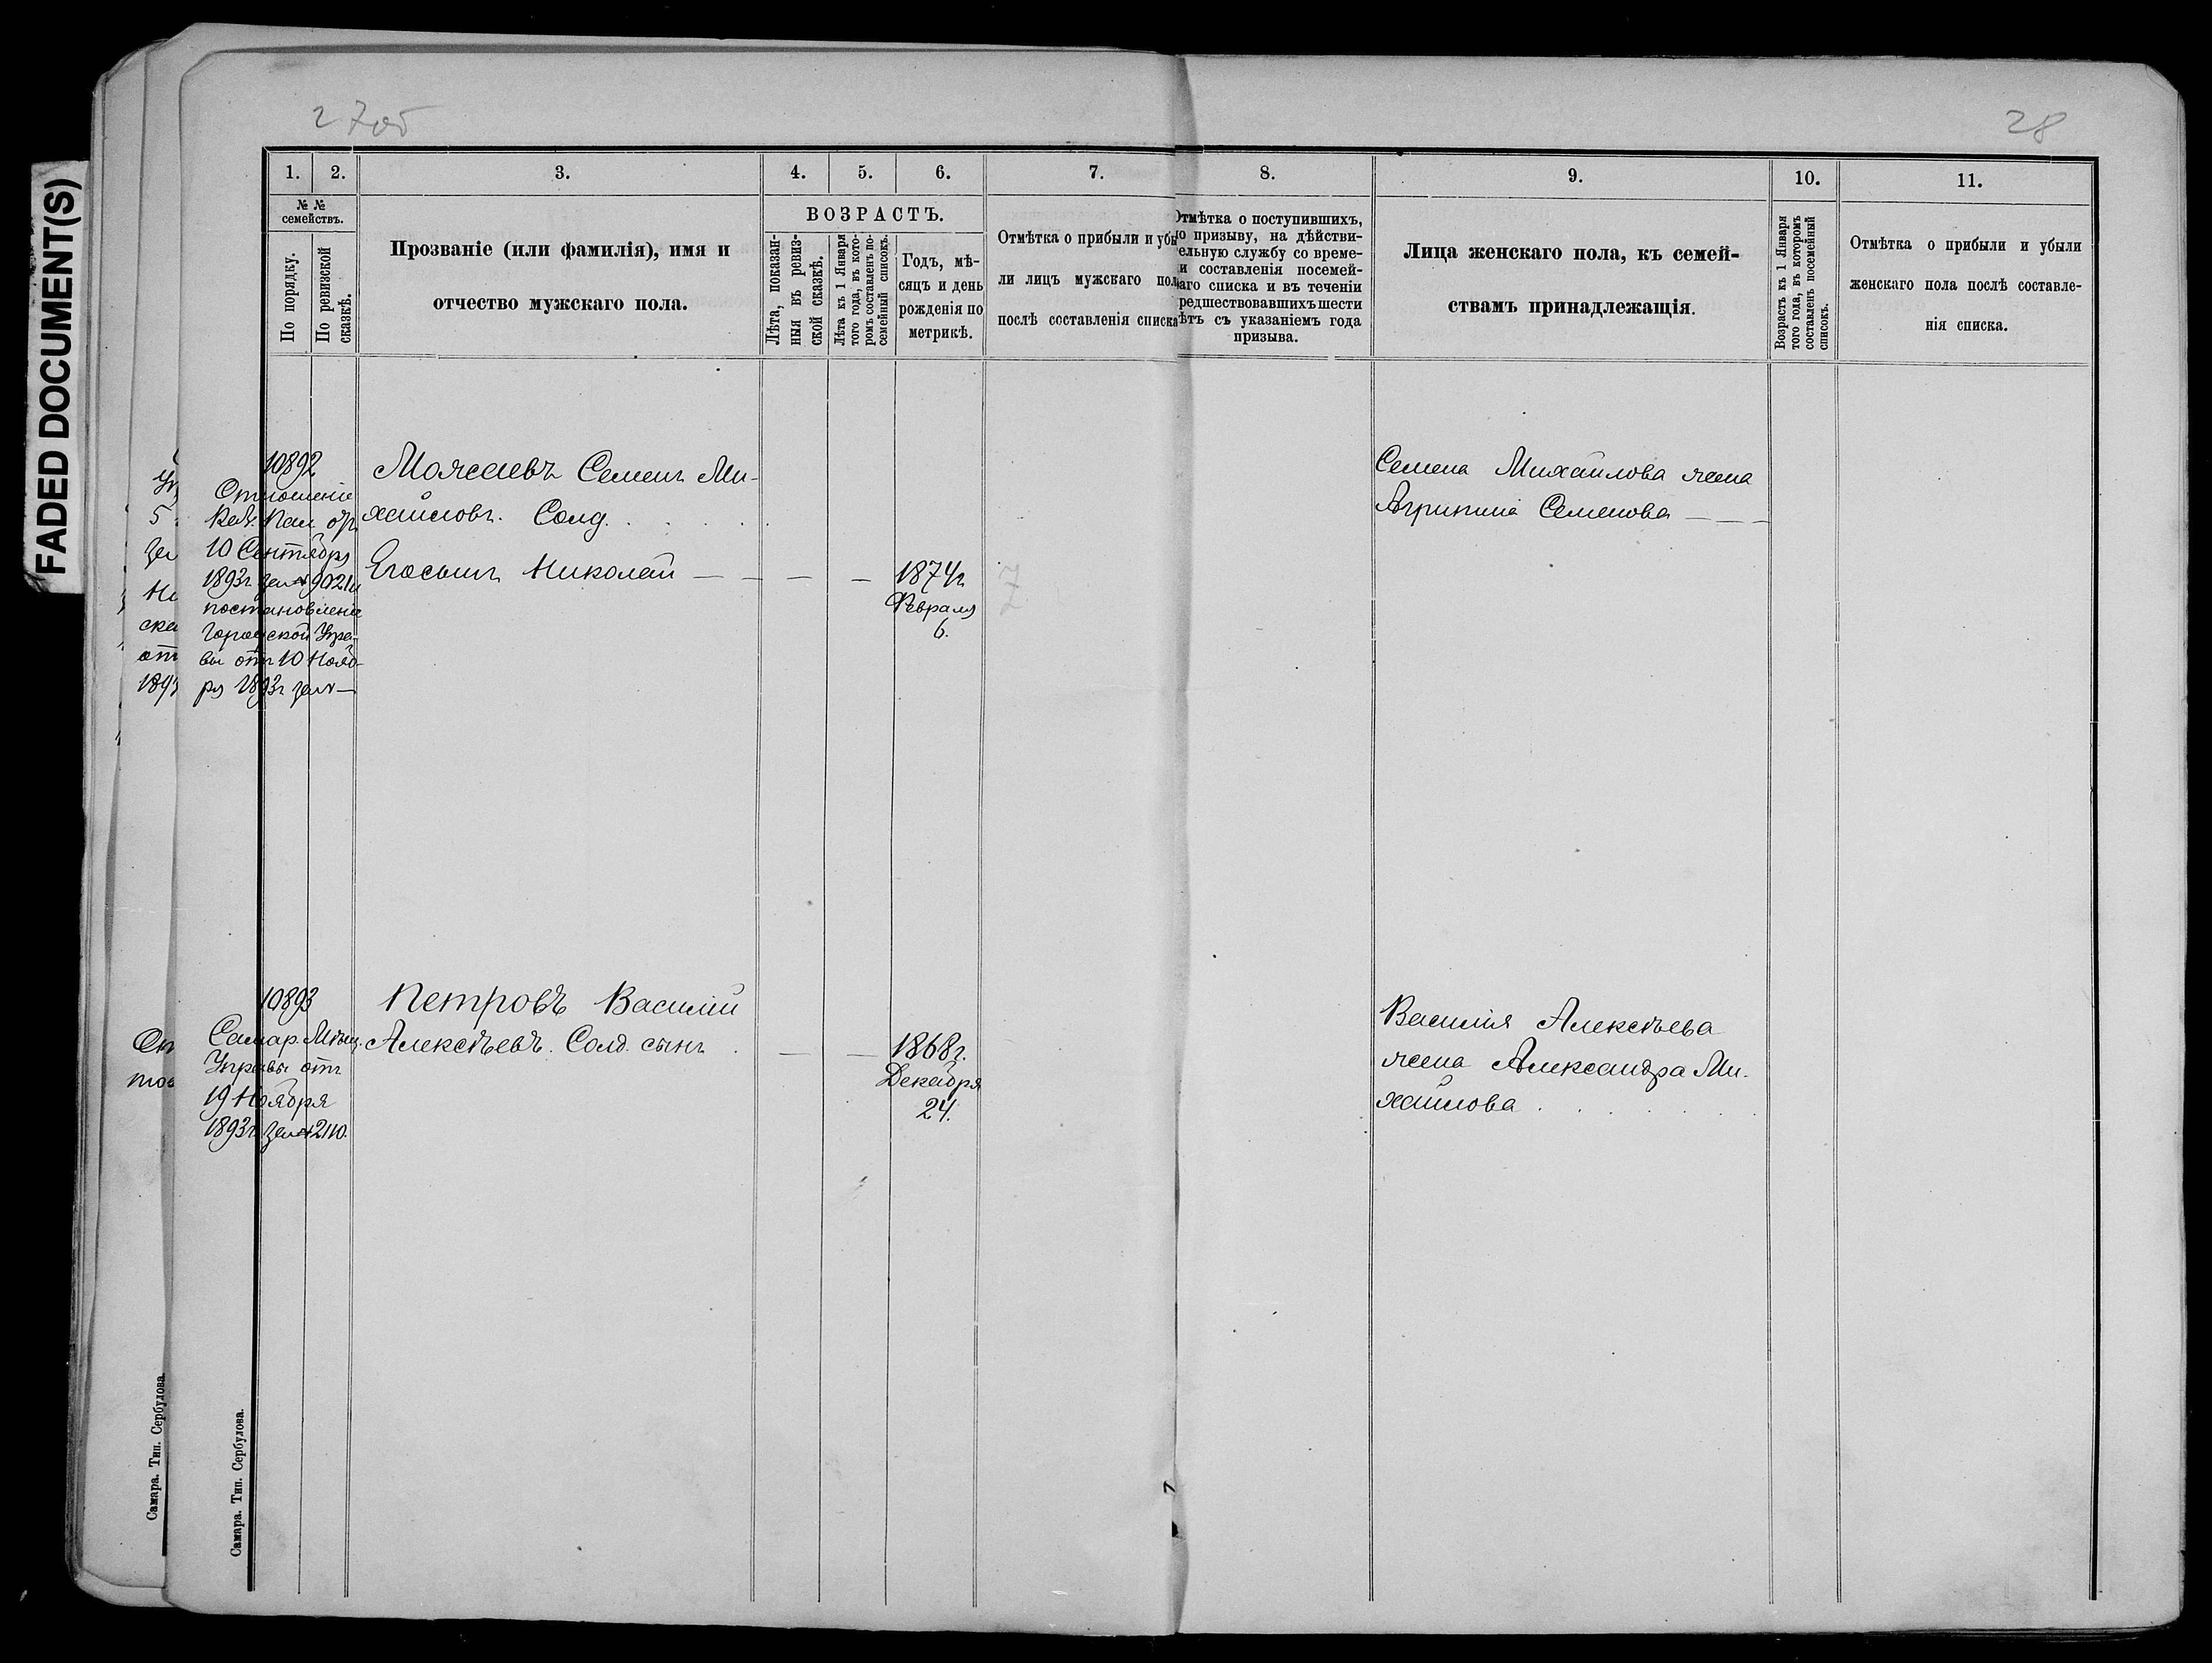 FADED DOCUMENT(S)
27об
28
1.
2.
3.
4.
5.
6.
7.
8.
9.
10.
11.
№ №
семействъ.
По порядку.
По ревизской
сказкѣ.
Прозваніе (или фамилія), имя и
отчество мужскаго пола.
ВОЗРАСТЪ.
Лѣта, показан-
ныя въ ревиз-
ской сказкѣ.
Лѣта къ 1 Января
того года, въ кото-
ромъ составленъ по-
семейный списокъ.
Годъ, мѣ-
сяцъ и день
рожденія по
метрикѣ.
Отмѣтка о прибыли и убы
ли лицъ мужскаго пола
послѣ составленія списка
Отмѣтка о поступившихъ,
по призыву, на дѣйстви-
ельную службу со време-
и составленія посемей-
аго списка и въ теченіи
редшествовавшихъ шести
ѣтъ съ указаніемъ года
призыва.
Лица женскаго пола, къ семей-
ствамъ принадлежащія.
Возрастъ къ 1 Января
того года, въ которомъ
составленъ посемейный
списокъ.
Отмѣтка о прибыли и убыли
женскаго пола послѣ составле-
нія списка.
10892
Отношеніе
Каз. Пал. отъ
10 Сентября
1893г за № 9021 и
постановленіе
Городской Упра-
вы отъ 10 Нояб-
ря 1893г за № —
Можаевъ Семенъ Ми-
хайловъ. Солд.
Егосынъ Николай — — — —
1874г
Февраля
6.
Семена Михайлова жена
Агрипина Семенова — — —
10893
Самар. Мѣщ.
Управы отъ
19 Ноября
1893г. за № 2110.
Петровъ Василій
Алексѣевъ. Солд. сынъ
1868г.
Декабря
24.
Василія Алексѣева
жена Александра Ми-
хайлова
Самара. Тип. Сербулова.
Самара. Тип. Сербулова.